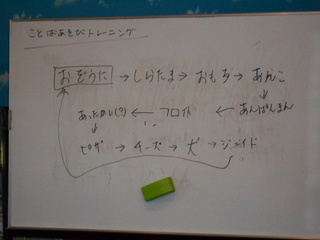 ことばあそびトレーニング
おぞうに → しらたま → おもち → あんこ
あったかい(?) ← フロイト ← あんぱんまん
ピザ → チーズ → 犬 → ジェイド